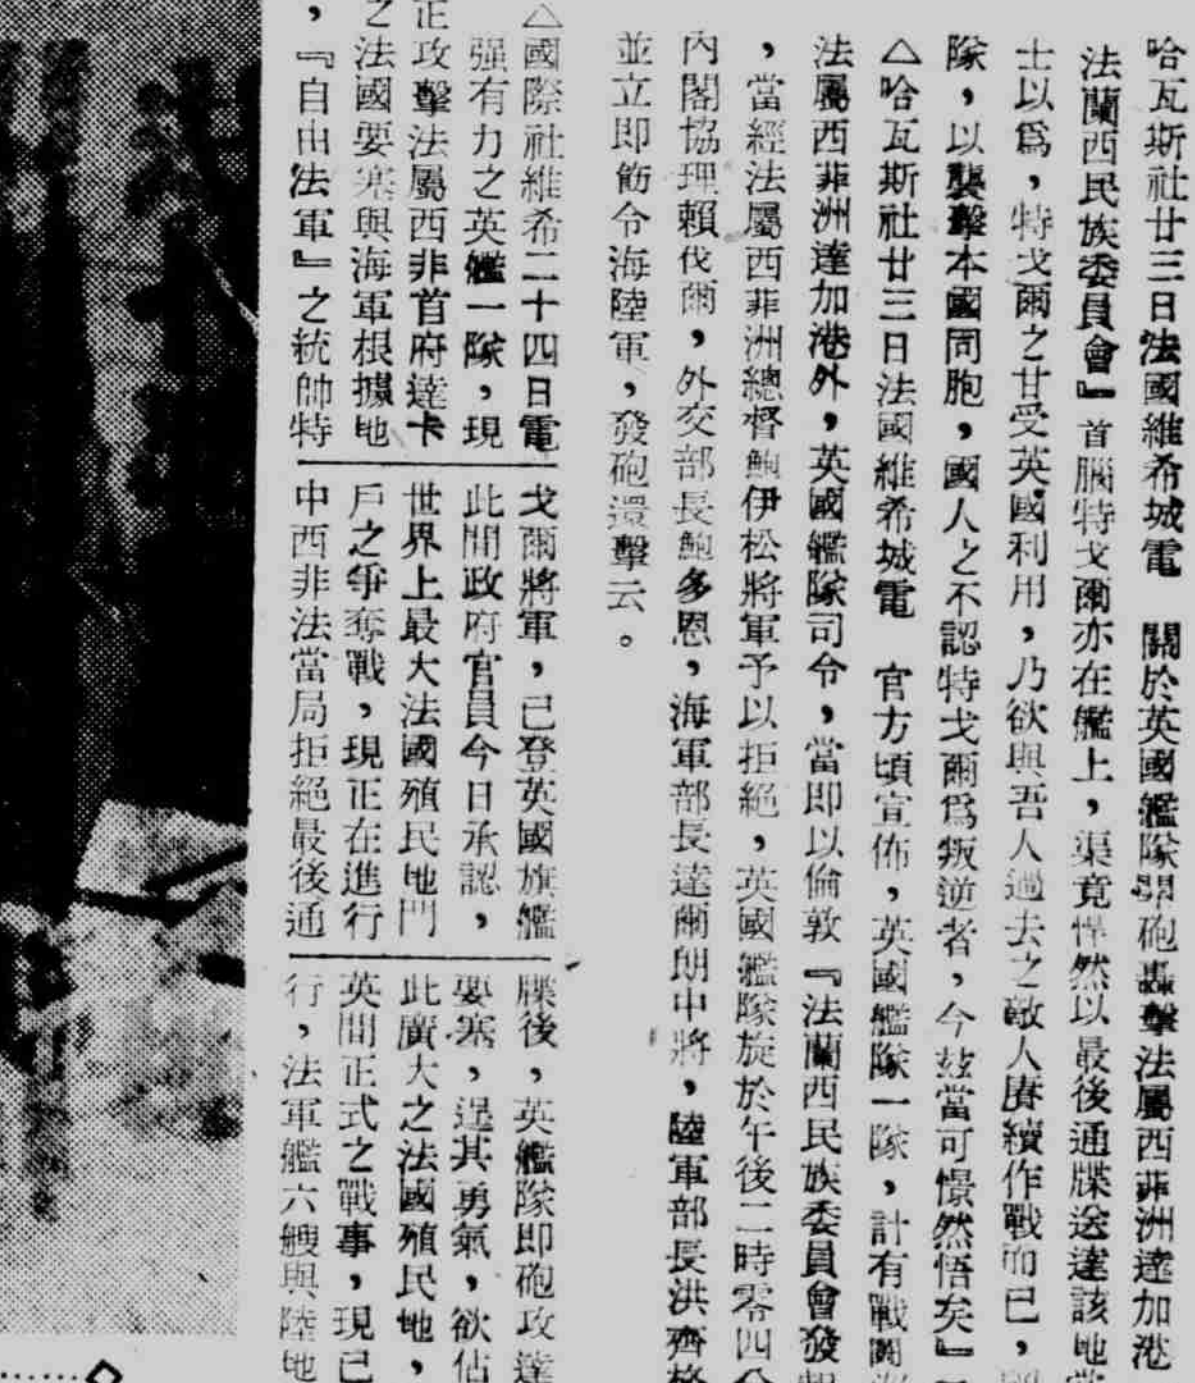 哈瓦斯社廿三日法國維希城電　關於英國艦隊開砲轟擊法屬西菲洲達加港
法蘭西民族委員會』首腦特戈爾亦在艦上，渠竟悍然以最後通牒送達該地當
士以爲，特戈爾之甘受英國利用，乃欲與吾人過去之敵人賡續作戰而已，
隊，以襲擊本國同胞，國人之不認特戈爾爲叛逆者，今茲當可憬然悟矣』
△哈瓦斯社廿三日法國維希城電　官方頃宣佈，英國艦隊一隊，計有戰鬭
法屬西菲洲達加港外，英國艦隊司令，當即以倫敦『法蘭西民族委員會發
，當經法屬西菲洲總督鮑伊松將軍予以拒絕，英國艦隊旋於午後二時零四分
內閣協理賴伐爾，外交部長鮑多恩，海軍部長達爾朗中將，陸軍部長洪齊格
並立即飭令海陸軍，發砲還擊云。
△國際社維希二十四日電
强有力之英艦一隊，現
正攻擊法屬西非首府達卡
之法國要塞與海軍根據地
，『自由法軍』之統帥特
戈爾將軍，已登英國旗艦
此間政府官員今日承認，
世界上最大法國殖民地門
戶之爭奪戰，現正在進行
中西非法當局拒絕最後通
牒後，英艦隊即砲攻達
要塞，逞其勇氣，欲佔
此廣大之法國殖民地，
英間正式之戰事，現已
行，法軍艦六艘與陸地